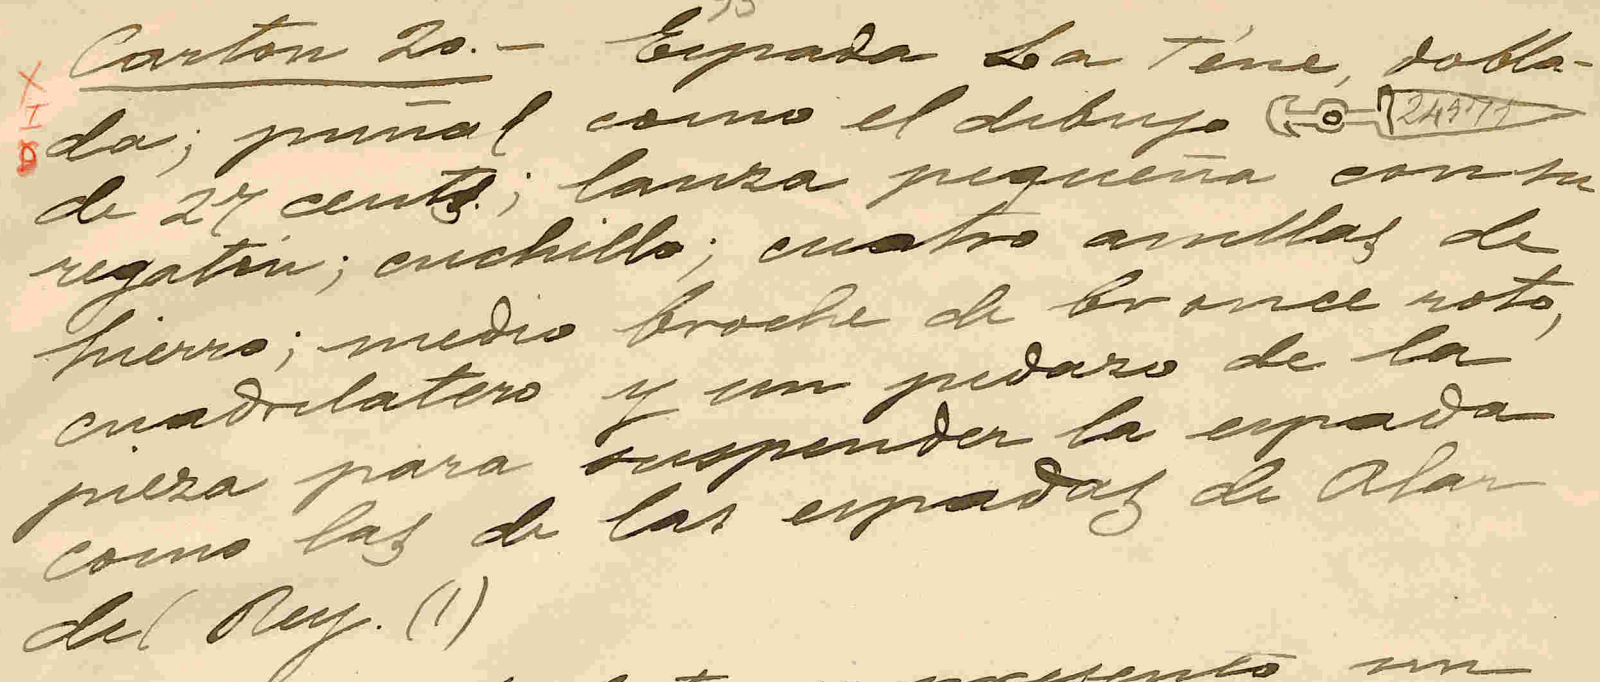 Carton 20.- Espada La Téne, dobla-
da; puñal como el dibujo
de 27 cents.; lanza pequeña con su
regatón; cuchillo; cuatro anillas de
hierro; medio broche de bronce roto,
cuadrilatero y un pedazo de la
pieza para suspender la espada
como las de las espadas de Alar
del Rey. (1)
un